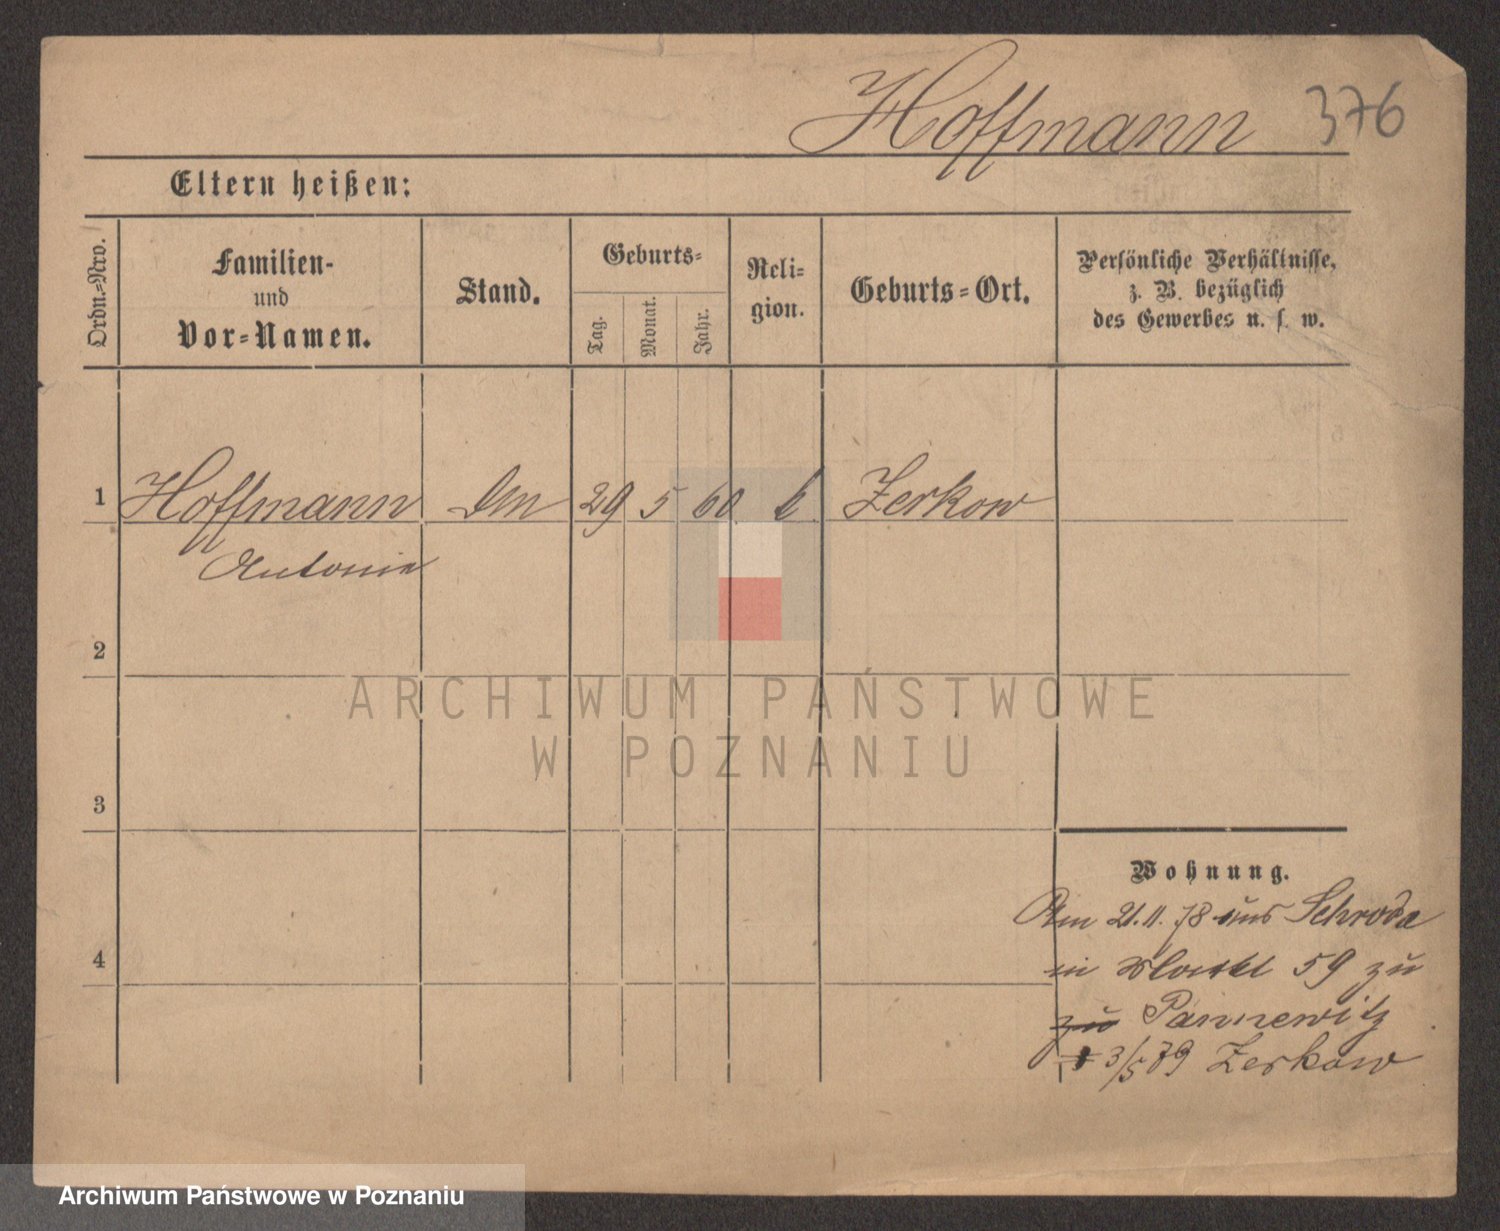 Hoffmann 376
Eltern heißen:
Ordn.=Nro.
Familien-
und
Vor=Namen.
Stand.
Geburts=
Tag.
Monat.
Jahr.
Reli=
gion.
Geburts=Ort.
Persönliche Verhältnisse,
z. B. bezüglich
des Gewerbes u. s. w.
1 Hoffmann 29 5 60 k Zerkow
Antonie
2
ARCHIWUM PAŃSTWOWE
W POZNANIU
3
Wohnung.
Am 21.11.78 aus Schroda
4
in 59 zu
zu Pannewitz
3/5 79 Zerkow
Archiwum Państwowe w Poznaniu